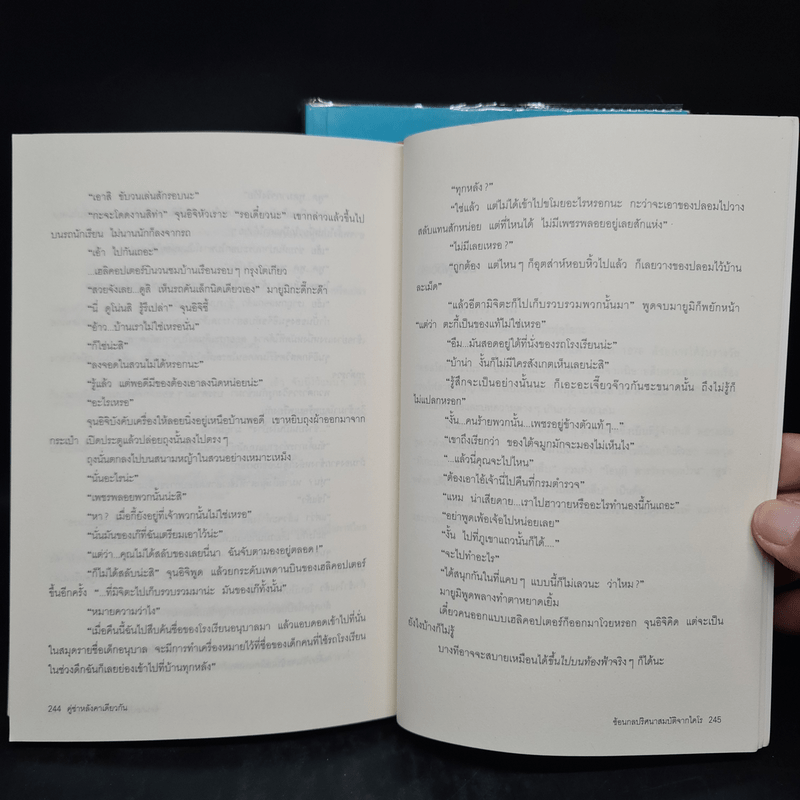 “เอาสิ ขับวนเล่นสักรอบนะ”
“กะจะโดดงานสิท่า” จุนอิจิหัวเราะ “รอเดี๋ยวนะ” เขากล่าวแล้วขึ้นไป
บนรถนักเรียน ไม่นานนักก็ลงจากรถ
“เอ้า ไปกันเถอะ”
...เฮลิคอปเตอร์บินวนชมบ้านเรือนรอบๆ กรุงโตเกียว
“สวยจังเลย...ดูสิ เห็นรถคันเล็กนิดเดียวเอง” มายูมิกะดี๊กะด๊า
“นี่ ดูโน่นสิ รู้รึเปล่า” จุนอิจิชี้
“อ้าว...บ้านเราไม่ใช่เหรอนั่น”
“ก็ใช่น่ะสิ”
“ลงจอดในสวนไม่ได้หรอกนะ”
“รู้แล้ว แต่พอดีมีของต้องเอาลงนิดหน่อยน่ะ”
“อะไรเหรอ”
จุนอิจิบังคับเครื่องให้ลอยนิ่งอยู่เหนือบ้านพอดี เขาหยิบถุงผ้าออกมาจาก
กระเป๋า เปิดประตูแล้วปล่อยถุงนั้นลงไปตรงๆ
ถุงนั้นตกลงไปบนสนามหญ้าในสวนอย่างเหมาะเหม็ง
“นั่นอะไรน่ะ”
“เพชรพลอยพวกนั้นน่ะสิ”
“หา? เมื่อกี้ยังอยู่ที่เจ้าพวกนั้นไม่ใช่เหรอ”
“นั่นมันของเก๊ที่ฉันเตรียมเอาไว้น่ะ”
“แต่ว่า...คุณไม่ได้สลับของเลยนี่นา ฉันจับตามองอยู่ตลอด!”
“ก็ไม่ได้สลับน่ะสิ” จุนอิจิพูด แล้วยกระดับเพดานบินของเฮลิคอปเตอร์
ขึ้นอีกครั้ง “...ที่มิจิตะไปเก็บรวบรวมมาน่ะ มันของเก๊ทั้งนั้น”
“หมายความว่าไง”
“เมื่อคืนนี้ฉันไปสืบค้นชื่อของโรงเรียนอนุบาลมา แล้วแอบดอดเข้าไปที่นั่น
ในสมุดรายชื่อเด็กอนุบาล จะมีการทำเครื่องหมายไว้ที่ชื่อของเด็กคนที่ใช้รถโรงเรียน
ในช่วงดึกฉันก็เลยย่องเข้าไปที่บ้านทุกหลัง”
244 คู่ซ่าหลังคาเดียวกัน
“ทุกหลัง?”
“ใช่แล้ว แต่ไม่ได้เข้าไปขโมยอะไรหรอกนะ กะว่าจะเอาของปลอมไปวาง
สลับแทนสักหน่อย แต่ที่ไหนได้ ไม่มีเพชรพลอยอยู่เลยสักแห่ง”
“ไม่มีเลยเหรอ?”
“ถูกต้อง แต่ไหนๆ ก็อุตส่าห์หอบหิ้วไปแล้ว ก็เลยวางของปลอมไว้บ้าน
ละเม็ด”
“แล้วอีตามิจิตะก็ไปเก็บรวบรวมพวกนั้นมา” พูดจบมายูมิก็พยักหน้า
“แต่ว่า ตะกี้เป็นของแท้ไม่ใช่เหรอ”
“อืม...มันสอดอยู่ใต้ที่นั่งของรถโรงเรียนน่ะ”
“บ้าน่า งั้นก็ไม่มีใครสังเกตเห็นเลยน่ะสิ”
“รู้สึกจะเป็นอย่างนั้นนะ ก็เอะอะเจี๊ยวจ๊าวกันซะขนาดนั้น ถึงไม่รู้ก็
ไม่แปลกหรอก”
“งั้น...คนร้ายพวกนั้น...เพชรอยู่ข้างตัวแท้ๆ...”
“เขาถึงเรียกว่า ของใต้จมูกมักจะมองไม่เห็นไง”
“...แล้วนี่คุณจะไปไหน”
“ต้องเอาไอ้เจ้านี่ไปคืนที่กรมตำรวจ”
“แหม น่าเสียดาย...เราไปฮาวายหรืออะไรทำนองนี้กันเถอะ”
“อย่าพูดเพ้อเจ้อไปหน่อยเลย”
“งั้น ไปที่ภูเขาแถวนั้นก็ได้....”
“จะไปทำอะไร”
“ได้สนุกกันในที่แคบๆ แบบนี้ก็ไม่เลวนะ ว่าไหม?”
มายูมิพูดพลางทำตาหยาดเยิ้ม
เดี๋ยวคนออกแบบเฮลิคอปเตอร์ก็ออกมาโวยหรอก จุนอิจิคิด แต่จะเป็น
ยังไงบ้างก็ไม่รู้
บางทีอาจจะสบายเหมือนได้ขึ้นไปบนท้องฟ้าจริงๆ ก็ได้นะ
ซ้อนกลปริศนาสมบัติจากไคโร 245